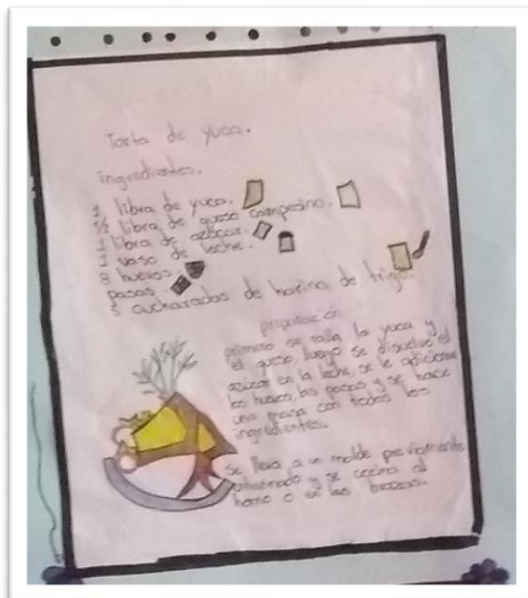 Torta de yuca.
ingredientes.
1 libra de yuca.
1/2 libra de queso campesino.
1 libra de azucar.
1 vaso de leche.
8 huevos.
pasas
3 cucharadas de harina de trigo.
preparación
primero se ralla la yuca y
el queso, luego se disuelve el
azucar en la leche, se le adiciona
los huevos, las pasas y se hace
una masa con todos los
ingredientes.
se lleva a un molde previamente
enharinado y se cocina al
horno o en las brazas.